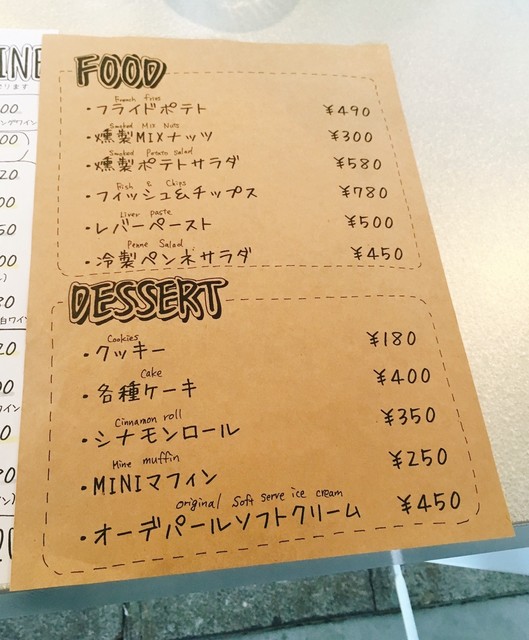 INE
FOOD
French fries
・フライドポテト ¥490
Smoked Mix Nuts
・燻製MIXナッツ ¥300
Smoked Potato salad
・燻製ポテトサラダ ¥580
Fish & Chips
・フィッシュ&チップス ¥780
Liver paste
・レバーペースト ¥500
Penne Salad
・冷製ペンネサラダ ¥450
DESSERT
Cookies
・クッキー ¥180
Cake
・各種ケーキ ¥400
Cinnamon roll
・シナモンロール ¥350
Mine muffin
・MINIマフィン ¥250
original Soft serve ice cream
・オーデパールソフトクリーム ¥450